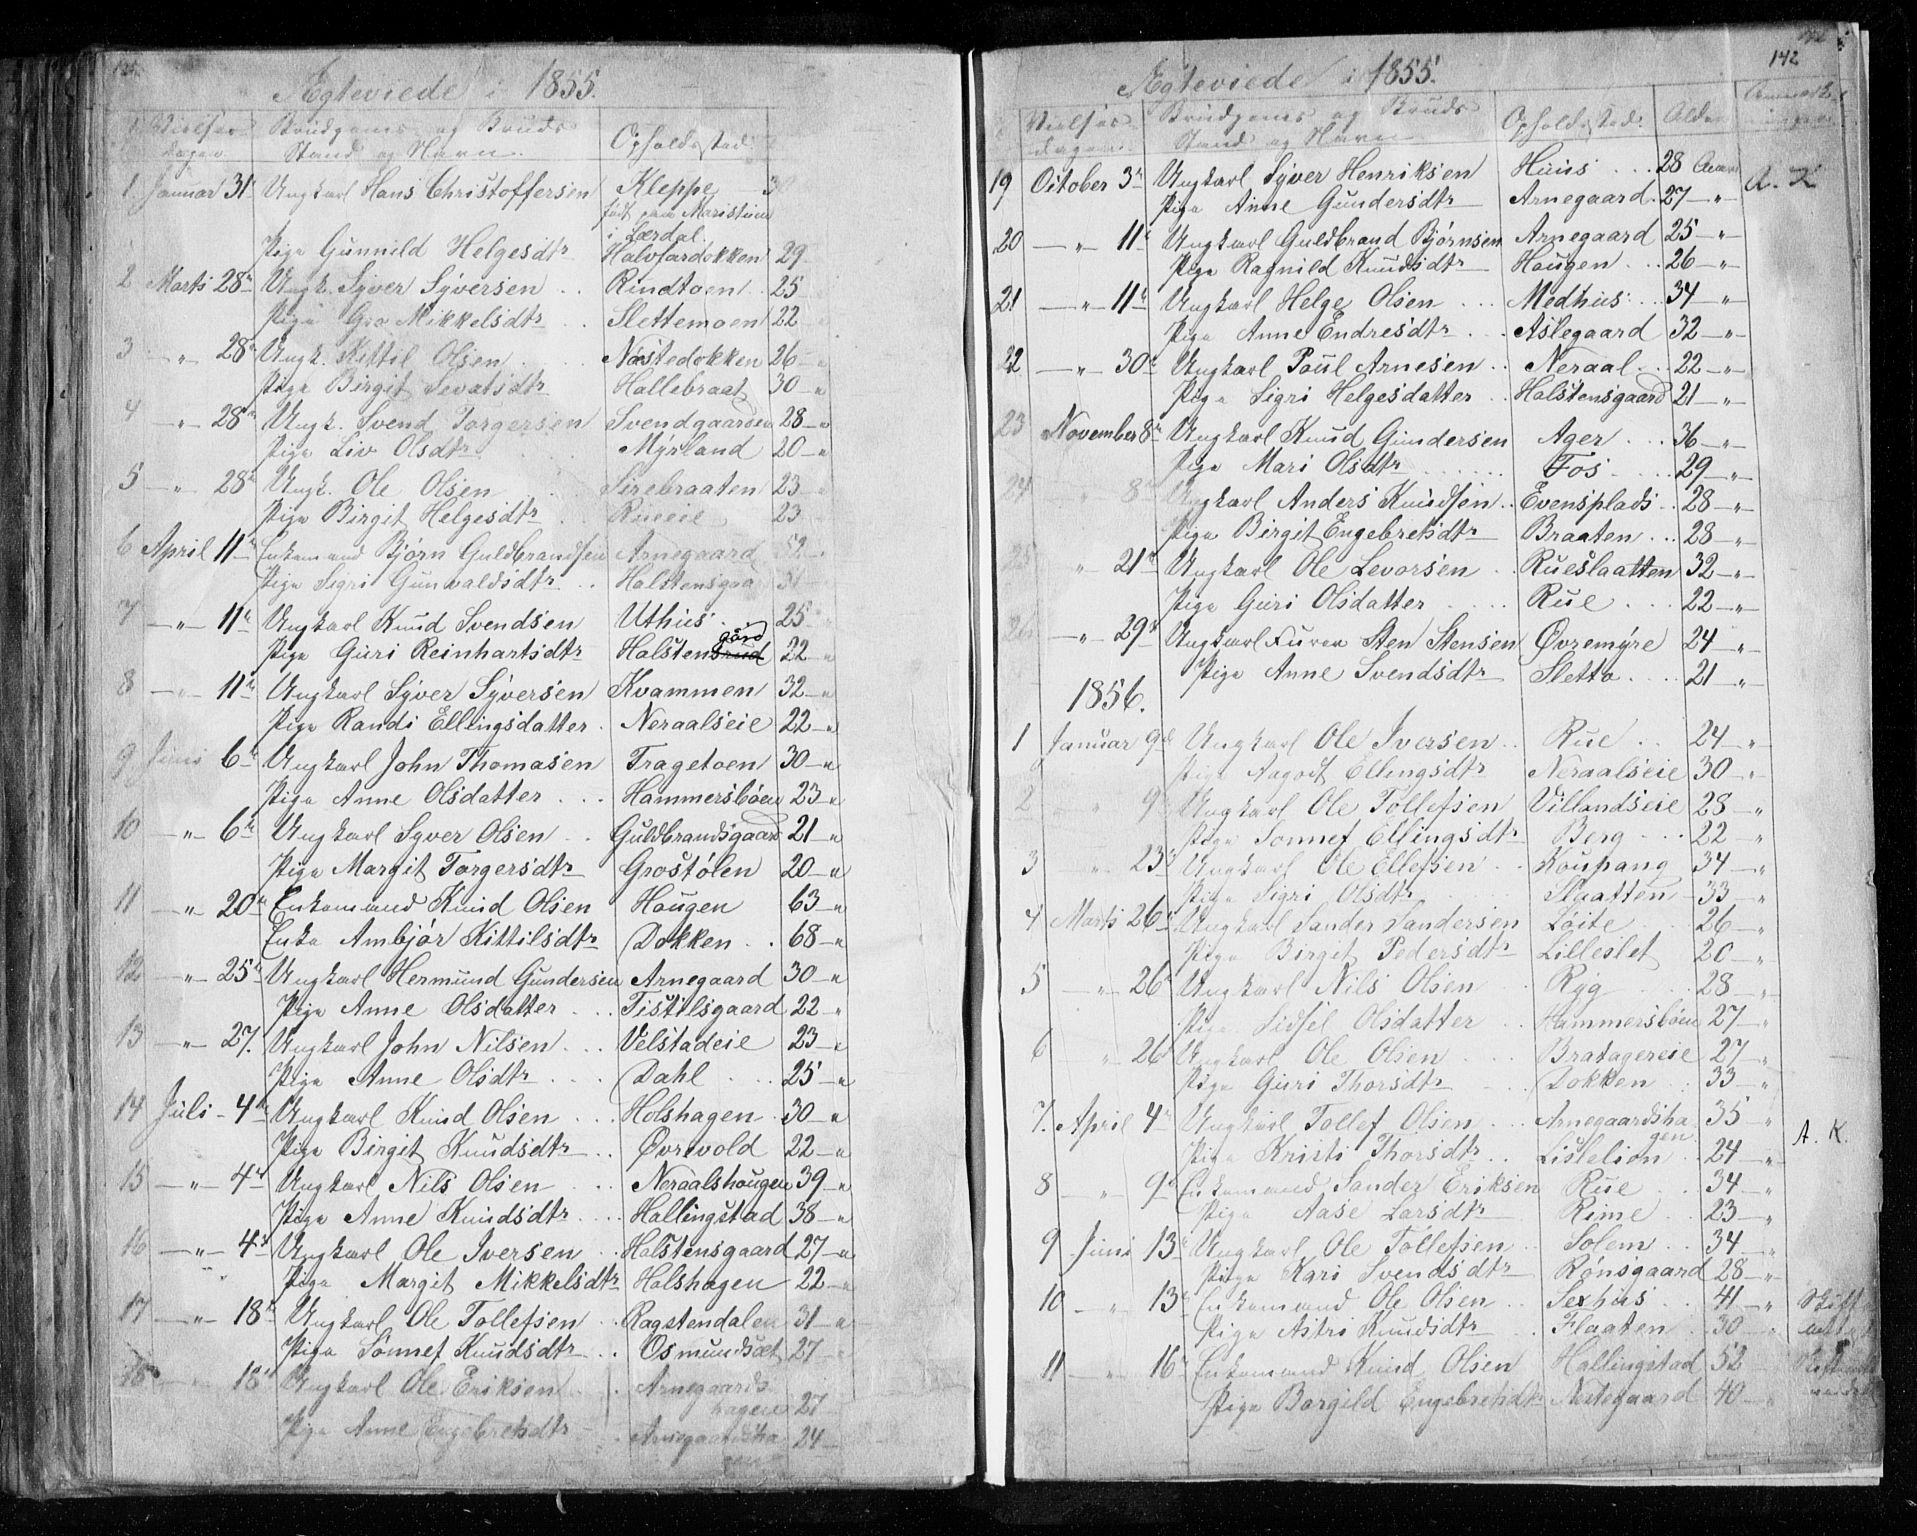 Ægteviede i 1855.
Vielses dagen. Brudgoms og Bruds Stand og Navn. Opholdssted
1 Januar 31 Ungkarl Hans Christoffersen Kleppe 30
født paa Maristuen
i Lærdal.
Pige Gunnild Helgesdtr Halvfardokken 29
2 Marts 28de Ungk. Syver Syversen Rindtoen 25
Pige Gro Mikkelsdtr Slettemoen 22
3 — " 28de Ungk. Kittil Olsen Næstedokken 26 - "
Pige Birgit Sevatsdtr Hallebraat 30 - "
4 - " 28de Ungk. Svend Torgersen Svendgaarden 28 - "
Pige Liv Olsdtr Myrland 20 - "
5 - " 28de Ungk. Ole Olsen Sirebraaten 23 -
Pige Birgit Helgesdtr Rueeie 23
6 April 11te Enkemand Bjørn Guldbrandsen Arnegaard 52
Pige Sigri Gunvaldsdtr Halstensgaa 31
7 - " - 11te Ungkarl Knud Svendsen Uthus 25
Pige Guri Reinhartsdtr Halstensrud gård 22 - "
8 - " - 11te Ungkarl Syver Syversen Kvammen 32 - "
Pige Randi Ellingsdatter Neraalseie 22 - "
9 Juni 6te Ungkarl John Thomasen Fragetoen 30 - "
Pige Anne Olsdatter Hammersbøen 23 - "
10 - " - 6te Ungkarl Syver Olsen Guldbrandsgaard 21 - "
Pige Margit Torgersdtr Grostølen 20 - "
11 - " 20de Enkemand Knud Olsen Haugen 63 - "
Enke Ambjør Kittilsdtr Dokken 68 - "
12 - " 25de Ungkarl Hermund Gundersen Arnegaard 30 - "
Pige Anne Olsdatter Tistilsgaard 22 - "
13 - " 27. Ungkarl John Nilsen Velstadeie 23 - "
Pige Anne Olsdtr Dahl 25 - "
14 Juli - 4de Ungkarl Knud Olsen Holshagen 30 - "
Pige Birgit Knudsdtr Øvrevold 22 - "
15 - " - 4de Ungkarl Nils Olsen Neraalshougen 39 - "
Pige Anne Knudsdtr Hallingstad 38 - "
16 - " - 4de Ungkarl Ole Iversen Halstensgaard 27 - "
Pige Margit Mikkelsdtr Halshagen 22 - "
17 - " - 18de Ungkarl Ole Tollefsen Ragstendalen 31 - "
Pige Sønnef Knudsdtr Osmundsæt 27
18 18de Ungkarl Ole Eriksen Arnegaards
hagen 27
Pige Anne Engebretsdtr Arnegaardsha 24
gen
142
Ægteviede i 1855.
Vielses dagen. Brudgoms og Bruds Stand og Navn Opholdssted: Alder
19 October 3de Ungkarl Syver Henriksen Huus 28 Aar A. K
Pige Anne Gundersdtr Arnegaard 27 - "
20 - " 11te Ungkarl Guldbrand Bjørnsen Arnegaard 25 - "
Pige Ragnild Knudsdtr Haugen 26 - "
21 - " - 11te Ungkarl Helge Olsen Medhus 34 - "
Pige Anne Endresdtr Aslegaard 32 - "
22 - " 30te Ungkarl Poul Arnesen Neraal 22 - "
Pige Sigri Helgesdatter Halstensgaard 21 - "
23 November 8de Ungkarl Knud Gundersen Ager 36 - "
Pige Mari Olsdtr Fos 29 - "
24 " 8de Ungkarl Anders Knudsen Evensplads 28 - "
Pige Birgit Engebretsdtr Braaten 28 - "
25 " 21de Ungkarl Ole Levorsen Rueslaatten 32 - "
Pige Guri Olsdatter Rue 22 - "
26 - " 29de Ungkarl Furer Sten Stensen Øvremyre 24 - "
Pige Anne Svendsdtr Sletto 21 - "
1856.
1 Januar 9de Ungkarl Ole Iversen Rue 24 - "
Pige Aagodt Ellingsdtr Neraalseie 30 - "
2 " 9de Ungkarl Ole Tollefsen Villandseie 28 - "
Pige Sønnef Ellingsdtr Berg 22 - "
3 - " 23de Ungkarl Ole Ellefsen Koupang 34 - "
Pige Sigri Olsdtr Slaatten 33 - "
4 Marts 26de Ungkarl Sander Sandersen Løite 26 - "
Pige Birget Pedersdtr Lilleslet 20 - "
5 - " 26de Ungkarl Nils Olsen Ryg 28 - "
Pige Sidsel Olsdatter Hammersbøen 27 - "
6 " 26de Ungkarl Ole Olsen Bratagereie 27 - "
Pige Guri Thorsdtr Dokken 33 - "
7. April 4de Ungkarl Tollef Olsen Arnegaardsha 35 "
gen. A. K.
Pige Kristi Thorsdtr Lislelien 24 - "
8 - " 9de Enkemand Sander Eriksen Rue 34 - "
Pige Aase Larsdtr Rime 23 - "
9 Juni 13de Ungkarl Ole Tollefsen Solem 34 - "
Pige Kari Svendsdtr Rønsgaard 28 - "
10 - " 13de Enkemand Ole Olsen Sexhus 41 - " Skifte
Pige Astri Knudsdtr Flaaten 30 - "
11 - " 16de Enkemand Knud Olsen Hallingstad 52
Pige Borgild Engebretsdtr Nestegaard 40 - "